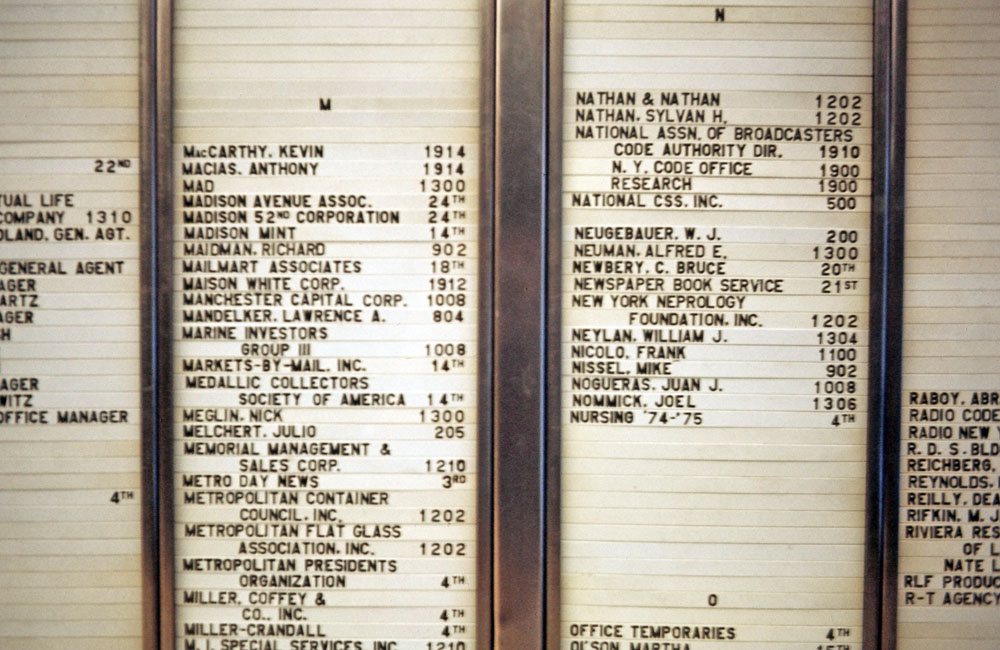 22ND
TUAL LIFE
COMPANY 1310
OLAND, GEN. AGT.
GENERAL AGENT
AGER
ARTZ
AGER
H
AGER
WITZ
OFFICE MANAGER
4TH
M
MacCARTHY, KEVIN 1914
MACIAS, ANTHONY 1914
MAD 1300
MADISON AVENUE ASSOC. 24TH
MADISON 52ND CORPORATION 24TH
MADISON MINT 14TH
MAIDMAN, RICHARD 902
MAILMART ASSOCIATES 18TH
MAISON WHITE CORP. 1912
MANCHESTER CAPITAL CORP. 1008
MANDELKER, LAWRENCE A. 804
MARINE INVESTORS
GROUP III 1008
MARKETS-BY-MAIL, INC. 14TH
MEDALLIC COLLECTORS
SOCIETY OF AMERICA 14TH
MEGLIN, NICK 1300
MELCHERT, JULIO 205
MEMORIAL MANAGEMENT &
SALES CORP. 1210
METRO DAY NEWS 3RD
METROPOLITAN CONTAINER
COUNCIL, INC. 1202
METROPOLITAN FLAT GLASS
ASSOCIATION, INC. 1202
METROPOLITAN PRESIDENTS
ORGANIZATION 4TH
MILLER, COFFEY &
CO., INC. 4TH
MILLER-CRANDALL 4TH
M. J. SPECIAL SERVICES, INC. 1210
N
NATHAN & NATHAN 1202
NATHAN, SYLVAN H. 1202
NATIONAL ASSN. OF BROADCASTERS
CODE AUTHORITY DIR. 1910
N. Y. CODE OFFICE 1900
RESEARCH 1900
NATIONAL CSS, INC. 500
NEUGEBAUER, W. J. 200
NEUMAN, ALFRED E. 1300
NEWBERY, C. BRUCE 20TH
NEWSPAPER BOOK SERVICE 21ST
NEW YORK NEPROLOGY
FOUNDATION, INC. 1202
NEYLAN, WILLIAM J. 1304
NICOLO, FRANK 1100
NISSEL, MIKE 902
NOGUERAS, JUAN J. 1008
NOMMICK, JOEL 1306
NURSING '74-'75 4TH
O
OFFICE TEMPORARIES 4TH
OLSON, MARTHA 15TH
RABOY, ABR
RADIO CODE
RADIO NEW Y
R. D. S. BLD
REICHBERG,
REYNOLDS,
REILLY, DEA
RIFKIN, M. J
RIVIERA RES
OF L
NATE L
RLF PRODUC
R-T AGENCY